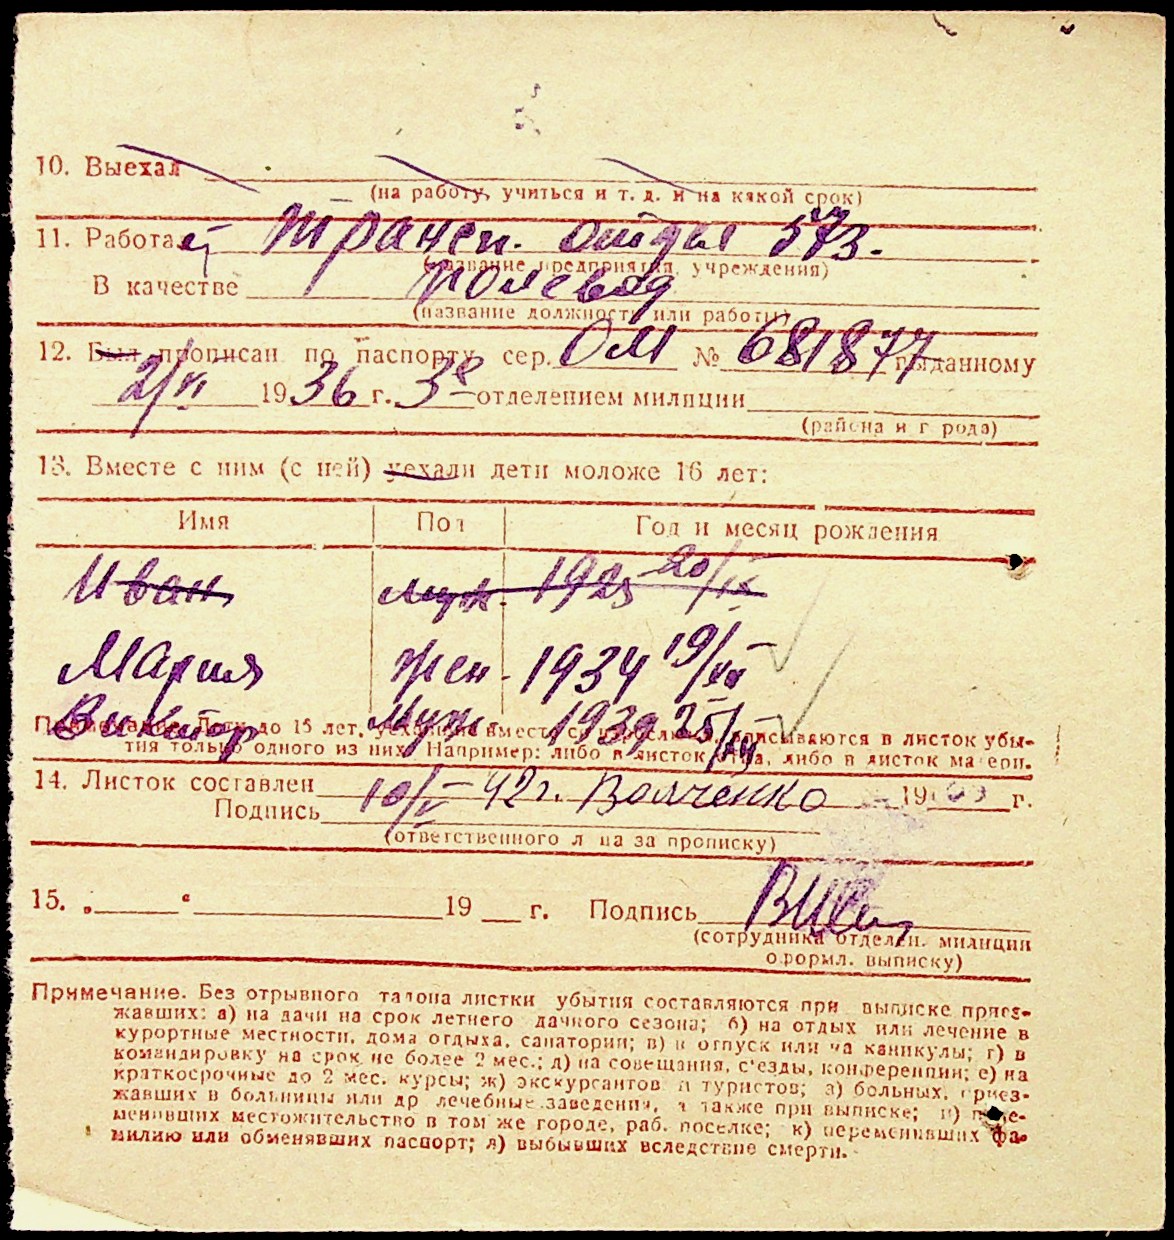 10. Выехал
(на работу, учиться и т. д. и на какой срок)
11. Работает Трансп. отдел 573.
(название предприятия, учреждения)
В качестве полевод
(название должности или работы)
12. Был прописан по паспорту сер. ОМ № 681877 выданному
2/VI 1936 г. 38 отделением милиции
(района и города)
13. Вместе с ним (с ней) уехали дети моложе 16 лет:
Имя Пол Год и месяц рождения
Иван муж. 1925 20/IX
Мария жен. 1934 19/
Виктор Муж. 1939 25/
Примечание. Дети до 15 лет, уехавшие вместе со взрослыми, вписываются в листок убы-
тия только одного из них. Например: либо в листок отца, либо в листок матери.
14. Листок составлен 10/V 42 г. Волченко 19 г.
Подпись
(ответственного лица за прописку)
15. „ “ 19 г. Подпись
(сотрудника отделен. милиции
оформл. выписку)
Примечание. Без отрывного талона листки убытия составляются при выписке приез-
жавших: а) на дачи на срок летнего дачного сезона; б) на отдых или лечение в
курортные местности, дома отдыха, санатории; в) в отпуск или на каникулы; г) в
командировку на срок не более 2 мес.; д) на совещания, с'езды, конференции; е) на
краткосрочные до 2 мес. курсы; ж) экскурсантов и туристов; з) больных, приез-
жавших в больницы или др лечебные заведения, а также при выписке; и) пере-
менивших местожительство в том же городе, раб. поселке; к) переменивших фа-
милию или обменявших паспорт; л) выбывших вследствие смерти.